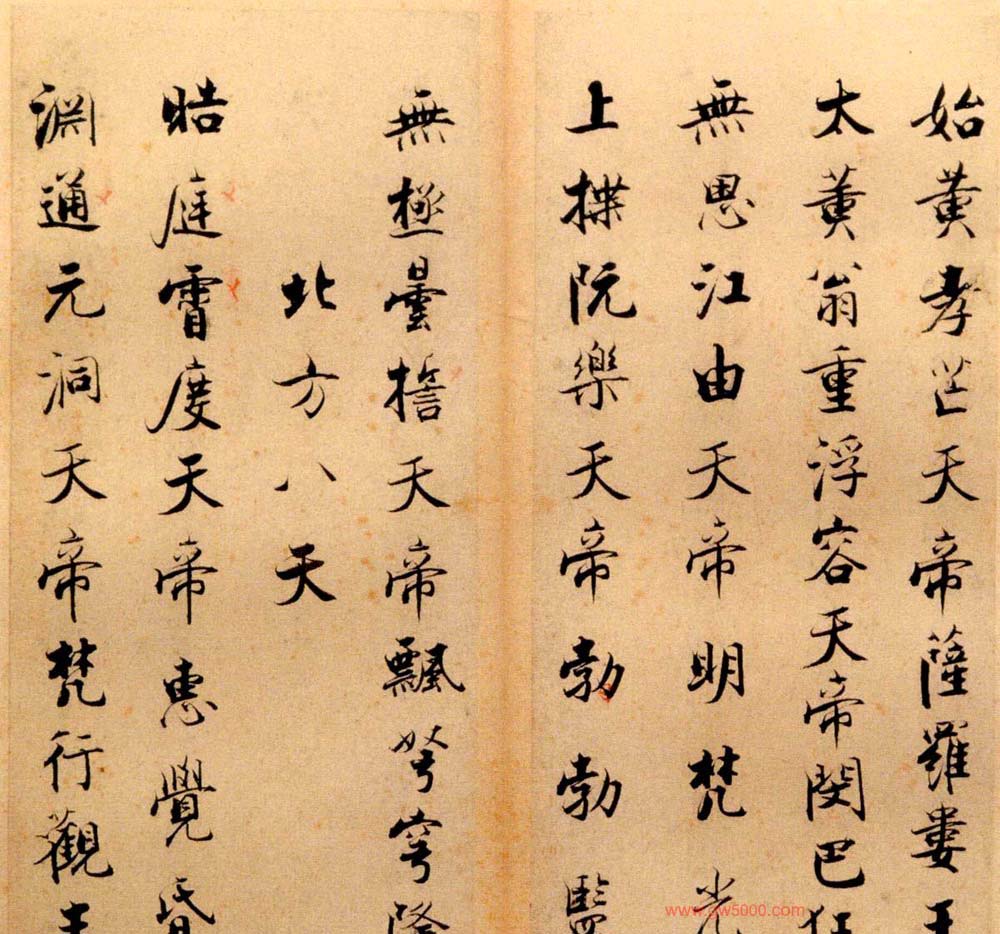 始黄孝芒天帝薩羅婁王
太黄翁重浮容天帝閔巴狂
無思江由天帝明梵光
上揲阮樂天帝勃勃監
無極曇誓天帝飄弩穹隆
北方八天
皓庭霄度天帝惠覺昏
淵通元洞天帝梵行觀生
www.gw5000.com